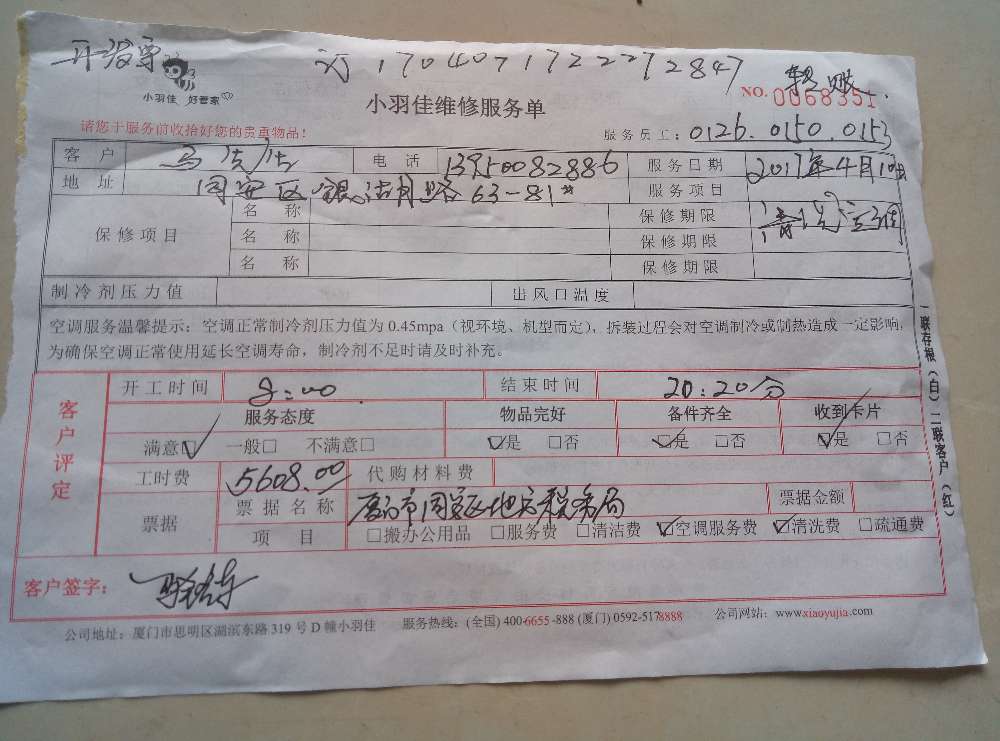 开发票
订170407172227 2847
转账
小羽佳 好管家
小羽佳维修服务单
NO. 0068351
请您于服务前收拾好您的贵重物品！
服务员工：0126.0150.0153
客户 电话 13950082886 服务日期 2017年4月
地址 同安区银湖路 63-81# 服务项目 清洗空调
保修项目 名称 保修期限
名称 保修期限
名称 保修期限
制冷剂压力值 出风口温度
空调服务温馨提示：空调正常制冷剂压力值为 0.45mpa（视环境、机型而定），拆装过程会对空调制冷或制热造成一定影响，
为确保空调正常使用延长空调寿命，制冷剂不足时请及时补充。
一联存根（白）二联客户（红）
客户评定
开工时间 8:00 结束时间 20:20分
服务态度 物品完好 备件齐全 收到卡片
满意☑ 一般□ 不满意□ ☑是 □否 ☑是 □否 ☑是 □否
工时费 5608.00 代购材料费
票据 票据名称 厦门市同安区地方税务局 票据金额
项目 □搬办公用品 □服务费 □清洁费 ☑空调服务费 ☑清洗费 □疏通费
客户签字：
公司地址：厦门市思明区湖滨东路 319 号 D 幢小羽佳 服务热线：(全国) 400-6655-888 (厦门) 0592-5178888 公司网站：www.xiaoyujia.com